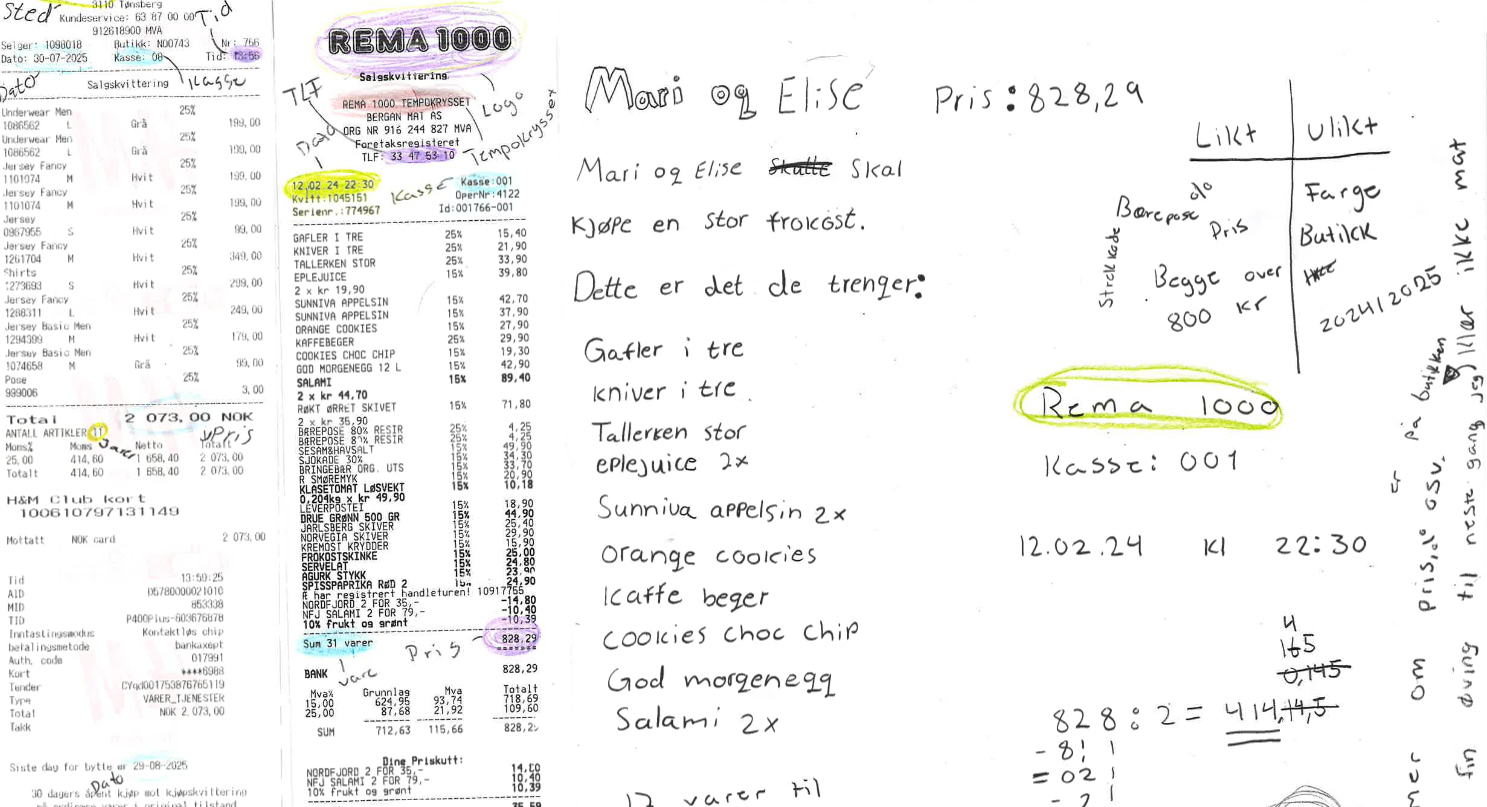 sted
3110 Tønsberg
Kundeservice: 63 87 00 00
Tid
912618900 MVA
Selger: 1098018 Butikk: NO0743 Nr: 766
Dato: 30-07-2025 Kasse: 08 Tid: 13:56
Dato
Salgskvittering
Kasse
Underwear Men 25%
1086562 L Grå 199,00
Underwear Men 25%
1086562 L Grå 199,00
Jersey Fancy 25%
1101074 M Hvit 199,00
Jersey Fancy 25%
1101074 M Hvit 199,00
Jersey 25%
0967955 S Hvit 99,00
Jersey Fancy 25%
1261704 M Hvit 349,00
Shirts 25%
1273693 S Hvit 299,00
Jersey Fancy 25%
1288311 L Hvit 249,00
Jersey Basic Men 25%
1294399 M Hvit 179,00
Jersey Basic Men 25%
1074658 M Grå 99,00
Pose 25%
999006 3,00
Total 2 073,00 NOK
ANTALL ARTIKLER 11
Varer
Pris
Moms% Moms Netto Totalt
25,00 414,60 1 658,40 2 073,00
Totalt 414,60 1 658,40 2 073,00
H&M Club kort
100610797131149
Mottatt NOK card 2 073,00
Tid 13:59:25
AID D5780000021010
MID 853338
TID P400Plus-603676878
Inntastingsmodus Kontaktløs chip
betalingsmetode bankaxept
Auth. code 017991
Kort ****6988
Tender CYqd001753876765119
Type VARER_TJENESTER
Total NOK 2 073,00
Takk
Siste dag for bytte er 29-08-2025
Dato
30 dagers åpent kjøp mot kjøpskvittering
på ordinære varer i original tilstand
REMA 1000
Salgskvittering
TLF
Logo
REMA 1000 TEMPOKRYSSET
BERGAN MAT AS
ORG NR 916 244 827 MVA
Foretaksregisteret
TLF: 33 47 53 10
Tempokrysset
Dato
12.02.24 22:30 Kasse:001
Kasse
Kvitt:1045151 OperNr:4122
Serienr.:774967 Id:001766-001
GAFLER I TRE 25% 15,40
KNIVER I TRE 25% 21,90
TALLERKEN STOR 25% 33,90
EPLEJUICE 15% 39,80
2 x kr 19,90
SUNNIVA APPELSIN 15% 42,70
SUNNIVA APPELSIN 15% 37,90
ORANGE COOKIES 15% 27,90
KAFFEBEGER 25% 29,90
COOKIES CHOC CHIP 15% 19,30
GOD MORGENEGG 12 L 15% 42,90
SALAMI 15% 89,40
2 x kr 44,70
RØKT ØRRET SKIVET 15% 71,80
2 x kr 35,90
BÆREPOSE 80% RESIR 25% 4,25
BÆREPOSE 80% RESIR 25% 4,25
SESAM&HAVSALT 15% 49,90
SJOKADE 30% 15% 34,30
BRINGEBÆR ORG. UTS 15% 33,70
R SMØREMYK 15% 20,90
KLASETOMAT LØSVEKT 15% 10,18
0,204kg x kr 49,90
LEVERPOSTEI 15% 18,90
DRUE GRØNN 500 GR 15% 44,90
JARLSBERG SKIVER 15% 25,40
NORVEGIA SKIVER 15% 29,90
KREMOST KRYDDER 15% 15,90
FROKOSTSKINKE 15% 25,00
SERVELAT 15% 24,80
AGURK STYKK 15% 23,90
SPISSPAPRIKA RØD 2 15% 24,90
Æ har registrert handleturen! 10917755
NORDFJORD 2 FOR 35,- -14,80
NFJ SALAMI 2 FOR 79,- -10,40
10% frukt og grønt -10,39
Sum 31 varer 828,29
Pris
vare
BANK 828,29
Mva% Grunnlag Mva Totalt
15,00 624,95 93,74 718,69
25,00 87,68 21,92 109,60
SUM 712,63 115,66 828,29
Dine Priskutt:
NORDFJORD 2 FOR 35,- 14,80
NFJ SALAMI 2 FOR 79,- 10,40
10% frukt og grønt 10,39
35,59
Mari og Elise Pris: 828,29
Mari og Elise Skulle Skal
Kjøpe en stor frokost.
Dette er det de trenger:
Gafler i tre
kniver i tre
Tallerken stor
eplejuice 2x
Sunniva appelsin 2x
Orange cookies
Kaffe beger
Cookies choc chip
God morgenegg
Salami 2x
12 varer til
Likt Ulikt
do
Bærepose
Pris
Strekkode
Begge over
800 kr
Farge
Butikk
2024/2025
Rema 1000
Kasse: 001
12.02.24 Kl 22:30
4
165
0,145
828:2=414,14,5
-8
=02
-2
er på butikken
om pris, do osv.
fin øving til neste gang jeg
klær ikke mat